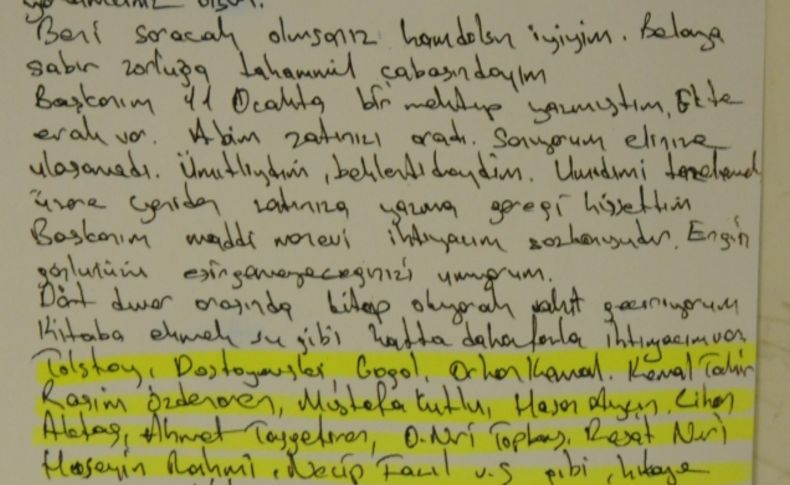 olsun.
Beni soracak olursanız hamdolsun iyiyim. Belaya
sabır zorluğa tahammül çabasındayım
Başkanım 11 Ocakta bir mektup yazmıştım, Ekte
evrak var. Abim zatınızı aradı. Sanıyorum elinize
ulaşamadı. Ümitliydim, beklentideydim. Umudumi tazelemek
üzere yeniden zatınıza yazma gereği hissettim
Başkanım maddi manevi ihtiyacım sözkonusudur. Engin
gönlünüzü esirgemeyeceğinizi umuyorum.
Dört duvar arasında kitap okuyarak vakit geçiriyorum
Kitaba ekmek su gibi hatta daha fazla ihtiyacım var
Tolstoy, Dostoyevski, Gogol, Orhan Kemal. Kemal Tahir
Rasim Özdenören, Mustafa Kutlu, Hasan Aycın, Cihan
Aktaş, Ahmet Taşgetiren, O. Nri Topbaş, Reşat Nuri
Hüseyin Rahmi, Necip Fazıl v.s gibi, hikaye